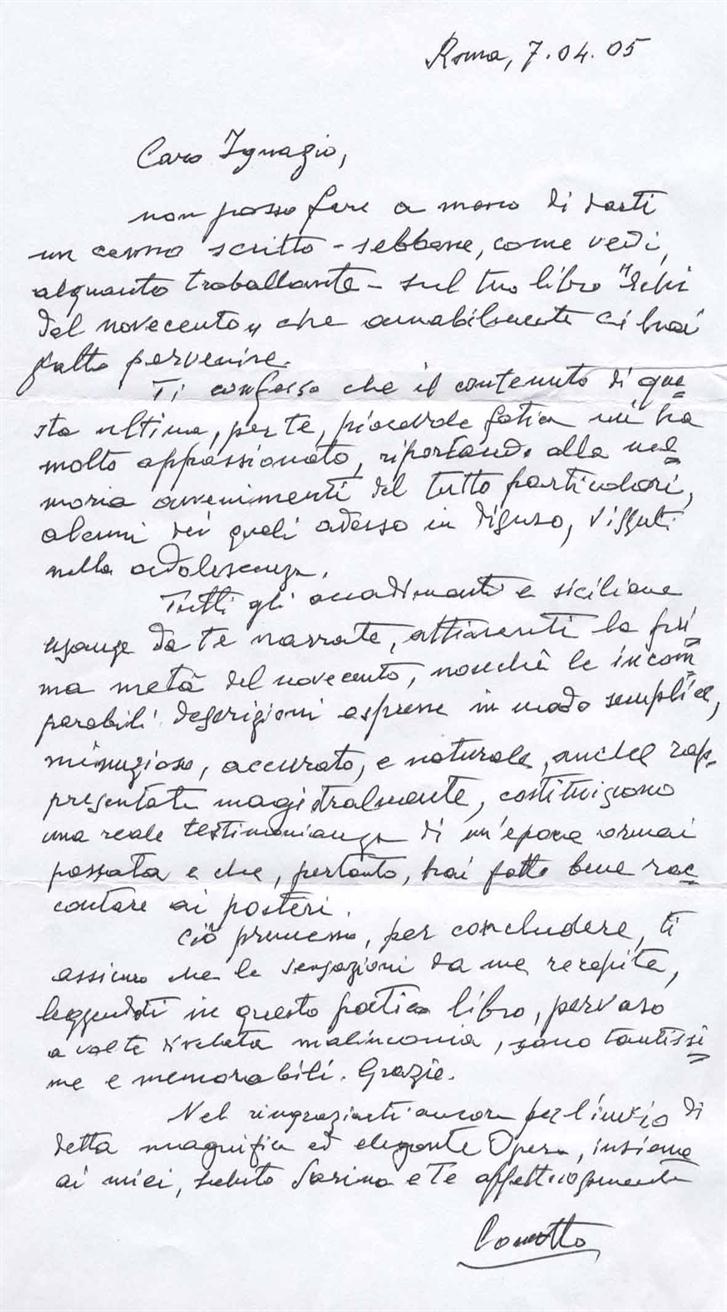 Roma, 7.04.05
Caro Ignazio,
non posso fare a meno di darti
un cenno scritto - sebbene, come vedi,
alquanto traballante - sul tuo libro "Echi
del novecento" che amabilmente ci hai
fatto pervenire.
Ti confesso che il contenuto di que=
sta ultima, per te, piacevole fatica mi ha
molto appassionato, riportando alla me=
moria avvenimenti del tutto particolari,
alcuni dei quali adesso in disuso, vissuti
nella adolescenza.
Tutti gli accadimenti e siciliane
usanze da te narrate, attinenti la pri=
ma metà del novecento, nonchè le incom=
parabili descrizioni espresse in modo semplice,
minuzioso, accurato, e naturale, anche rap=
presentate magistralmente, costituiscono
una reale testimonianza di un'epoca ormai
passata e che, pertanto, hai fatto bene rac=
contare ai posteri.
Ciò premesso, per concludere, ti
assicuro che le sensazioni da me recepite,
leggendoti in questo poetico libro, pervaso
a volte di velata malinconia, sono tantissi=
me e memorabili. Grazie.
Nel ringraziarti ancora per l'invio di
detta magnifica ed elegante Opera, insieme
ai miei, saluto Sarina e Te affettuosamente